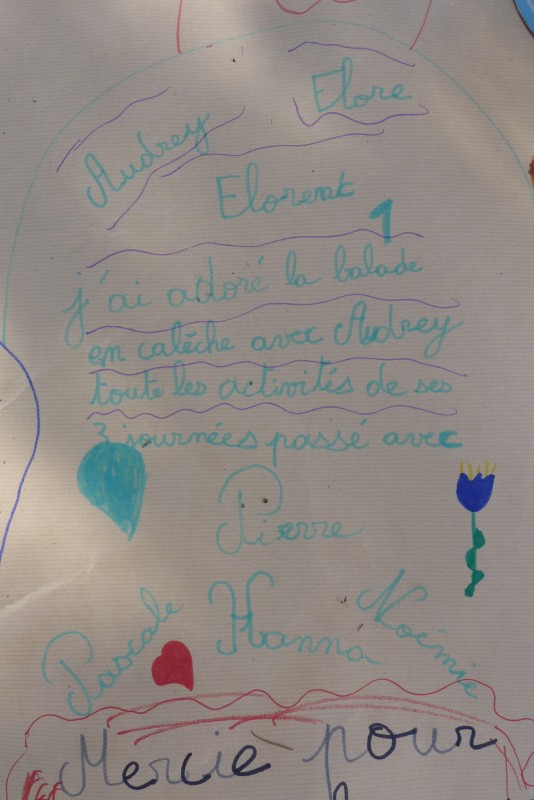 Elore
Audrey
1
j'ai adoré la balade
en calêche avec Audrey
toute les activités de ses
3 journées passé avec
Pierre
Pascale Hanna Noémie
Mercie pour